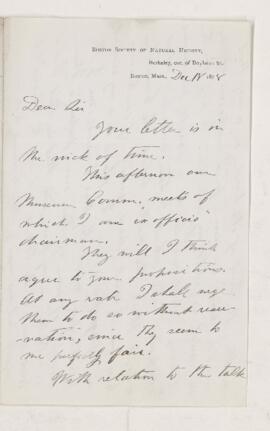 BOSTON SOCIETY OF NATURAL HISTORY,
Berkeley, cor. of Boylston St.
BOSTON, MASS., Dec 18
Dear Sir
Your letter is in
the nick of time.
This afternoon our
Museum Comm. meets of
which I am ex officio
chairman.
They will I think
agree to your propositions.
At any rate I shall urge
them to do so without reser-
vation, since they seem to
me perfectly fair.
With relation to the talk